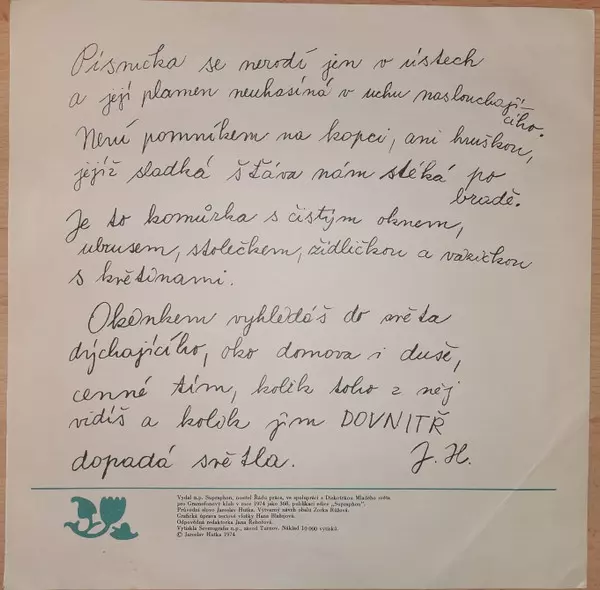 Písnička se nerodí jen v ústech
a její plamen neuhasíná v uchu naslouchají–
cího.
Není pomníkem na kopci, ani hruškou,
jejíž sladká šťáva nám stéká po
bradě.
Je to komůrka s čistým oknem,
ubrusem, stolečkem, židličkou a vázičkou
s květinami.
Okénkem vyhlédáš do světa
dýchajícího, oko domova i duše,
cenné tím, kolik toho z něj
vidíš a kolik jím DOVNITŘ
dopadá světla. J. H.
Vydal n.p. Supraphon, nositel Řádu práce, ve spolupráci s Diskotékou Mladého světa
pro Gramofonový klub v roce 1974 jako 368. publikaci edice „Supraphon“.
Průvodní slovo Jaroslav Hutka. Výtvarný návrh obalu Zorka Růžová.
Grafická úprava textové vložky Hana Blažejová.
Odpovědná redaktorka Jana Řehořová.
Vytiskla Severografie n.p., závod Turnov. Náklad 10 000 výtisků.
© Jaroslav Hutka 1974